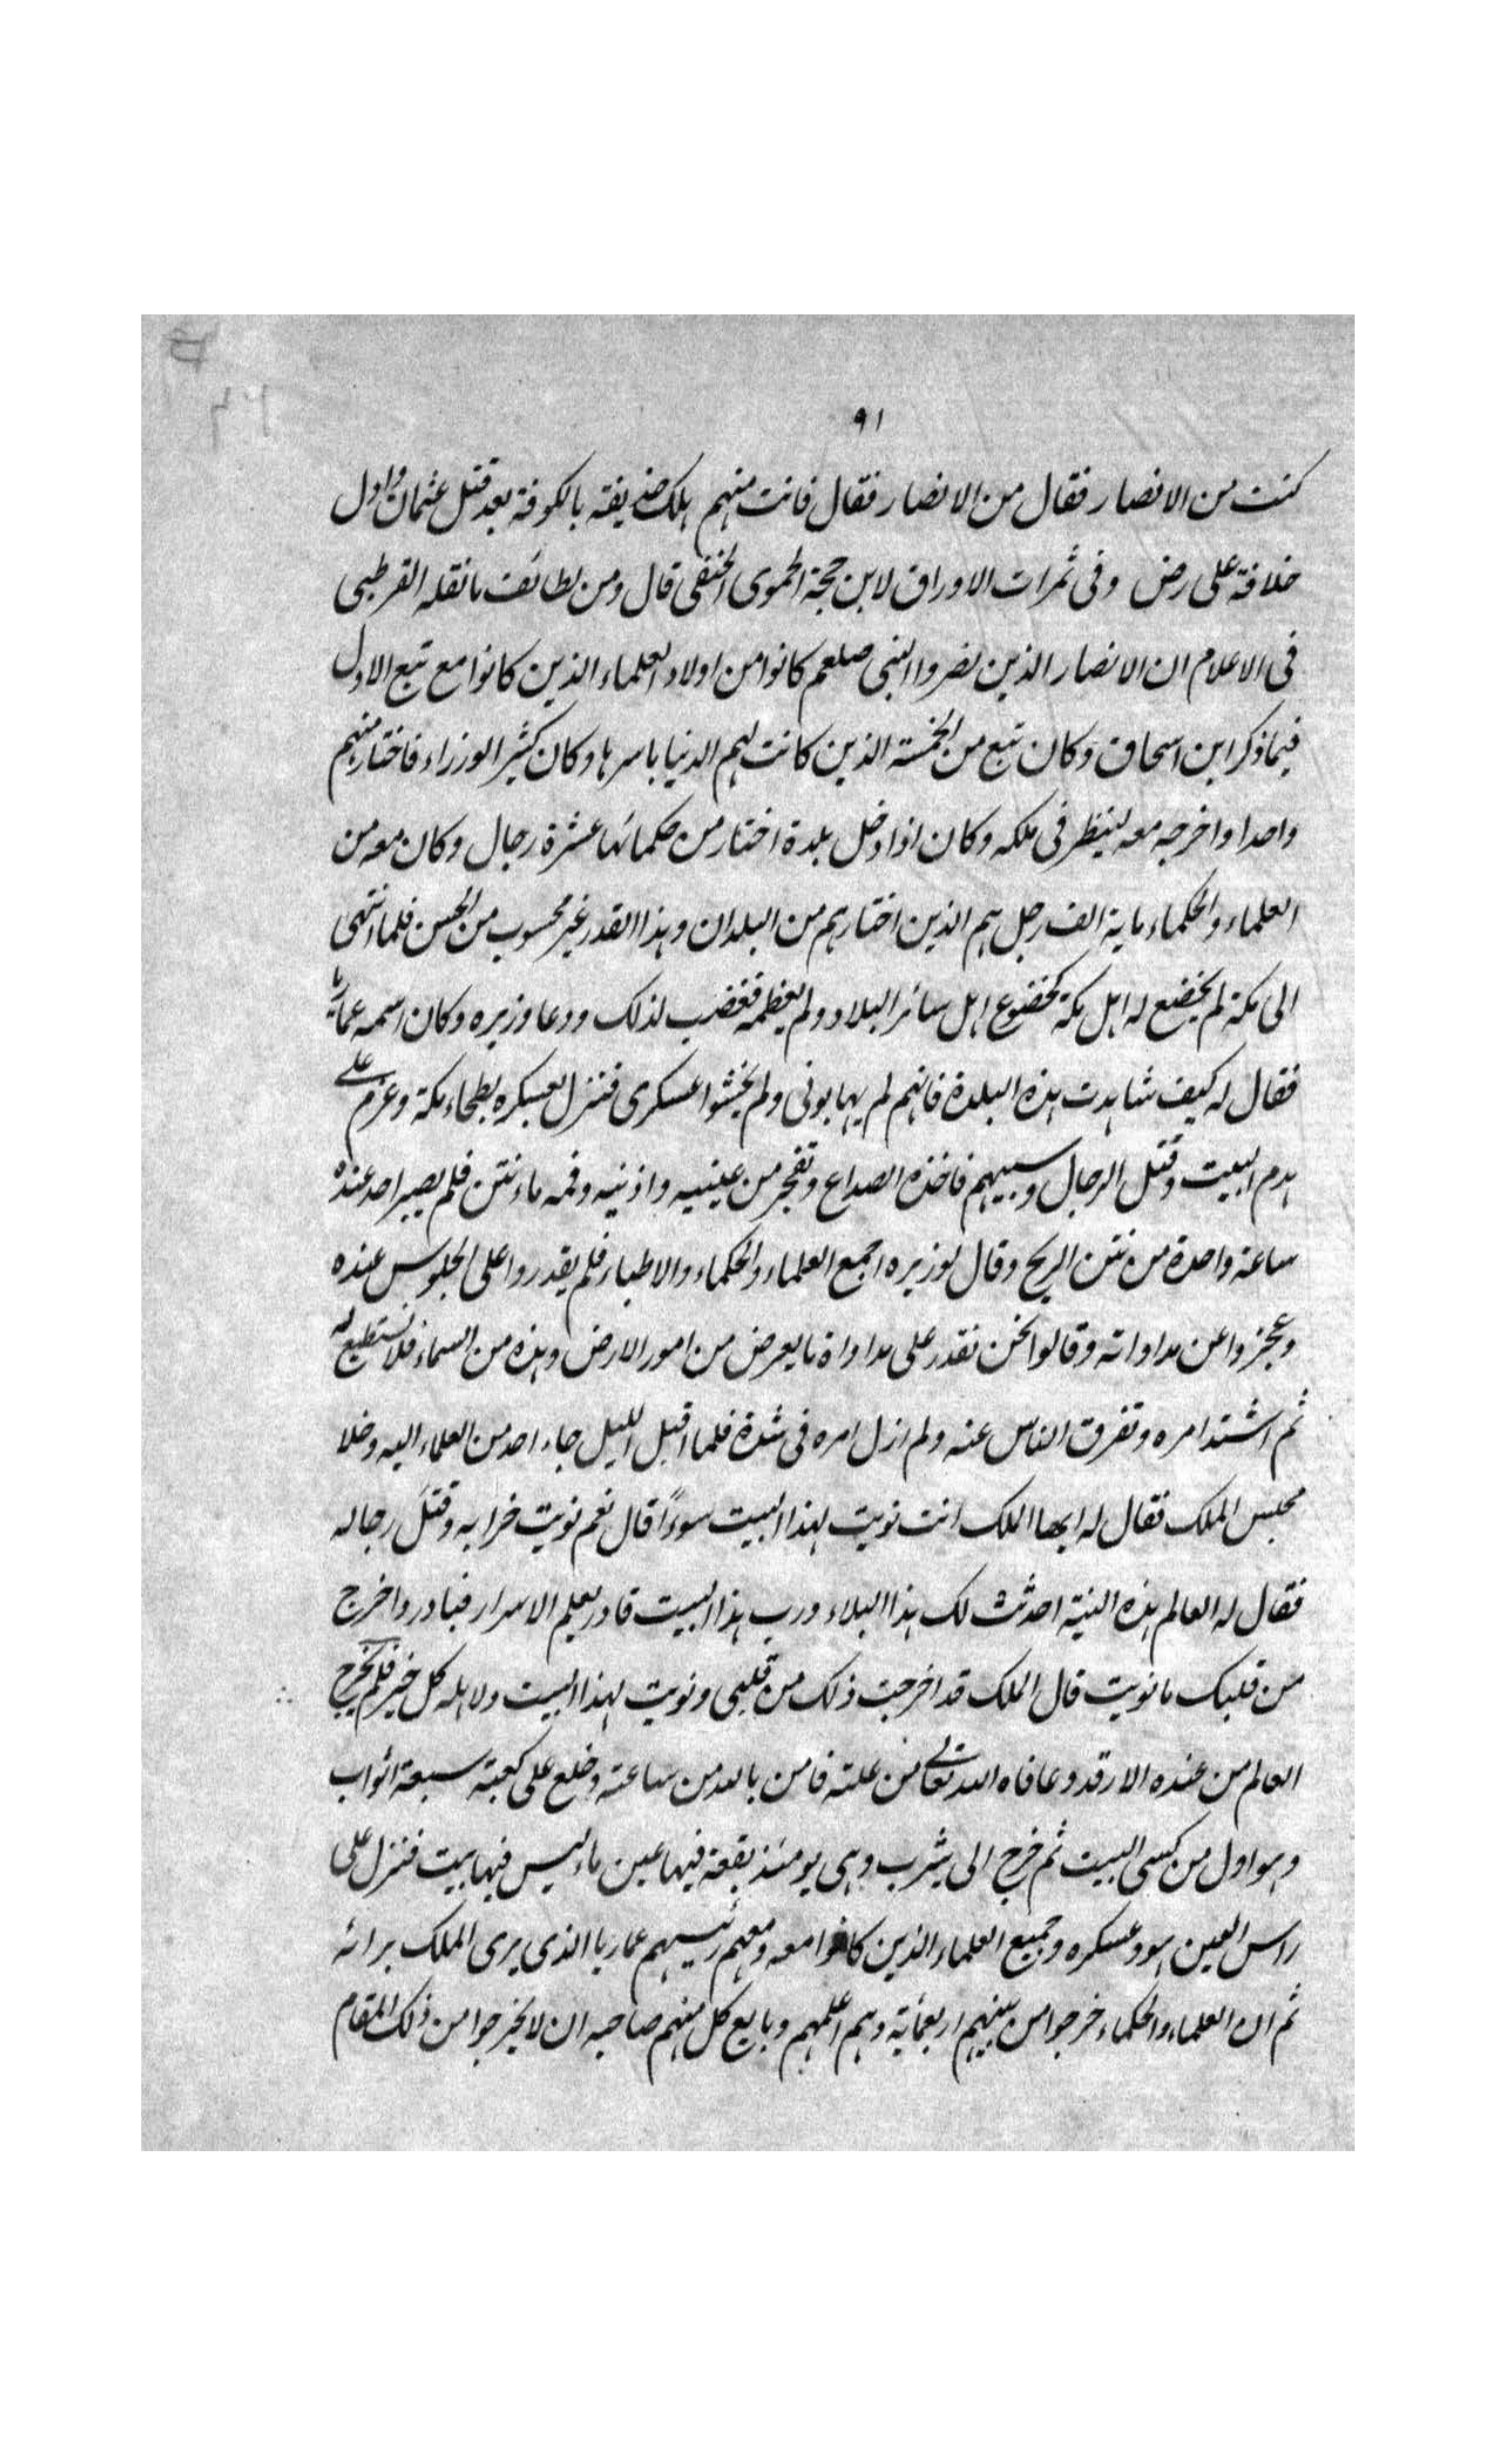 ٩١
كنت من الانصار فقال من الانصار فقال فانت منهم هلك حذيفة بالكوفة بعد قتل عثمان واول
خلافة على رض وفى ثمرات الاوراق لابن حجة الحموى الحنفى قال ومن لطائف ما نقله القرطبى
فى الاعلام ان الانصار الذين نصروا النبى صلعم كانوا من اولاد العلماء الذين كانوا مع تبع الاول
فيما ذكر ابن اسحاق وكان تبع من الخمسة الذين كانت لهم الدنيا باسرها وكان كثير الوزراء فاختار منهم
واحدا واخرجه معه لينظر فى ملكه وكان اذا دخل بلدة اختار من حكمائها عشرة رجال وكان معه من
العلماء والحكماء ماية الف رجل هم الذين اختارهم من البلدان وهذا القدر غير محسوب من الجيش فلما انتهى
الى مكة لم يخضع له اهل مكة كخضوع اهل سائر البلاد ولم يعظمه فغضب لذلك ودعا وزيره وكان اسمه عماريا
فقال له كيف شاهدت هذه البلدة فانهم لم يهابونى ولم يخشوا عسكرى فنزل بعسكره بطحاء مكة وعزم على
هدم البيت وقتل الرجال وسبيهم فاخذه الصداع وتفجر من عينيه واذنيه وفمه ماء نتن فلم يصبر احد عنده
ساعة واحدة من نتن الريح وقال لوزيره اجمع العلماء والحكماء والاطباء فلم يقدروا على الجلوس عنده
وعجزوا عن مداواته وقالوا نحن نقدر على مداواة ما يعرض من امور الارض وهذه من السماء فلا نستطيع له
ثم اشتد امره وتفرق الناس عنه ولم ازل امره فى شدة فلما اقبل الليل جاء احد من العلماء اليه وخلا
مجلس الملك فقال له ايها الملك انت نويت لهذا البيت سوءًا قال نعم نويت خرابه وقتلَ رجاله
فقال له العالم هذه النية احدثت لك هذا البلاء ورب هذا البيت قادر يعلم الاسرار فبادر واخرج
من قلبك ما نويت قال الملك قد اخرجت ذلك من قلبى ونويت لهذا البيت ولاهله كل خير فلم يخرج
العالم من عنده الا وقد وعافاه الله تعالى من علته فامن بالله من ساعته وخلع على كعبته سبعة اثواب
وهو اول من كسى البيت ثم خرج الى يثرب وهى يومئذ بقعة فيها عين ماء ليس فيها بيت فنزل على
راس العين هو وعسكره وجميع العلماء الذين كانوا معه ومعهم رئيسهم عماريا الذى يرى الملك برائه
ثم ان العلماء والحكماء خرجوا من بينهم اربعمائة وهم اعلمهم وبايع كل منهم صاحبه ان لا يخرجوا من ذلك المقام